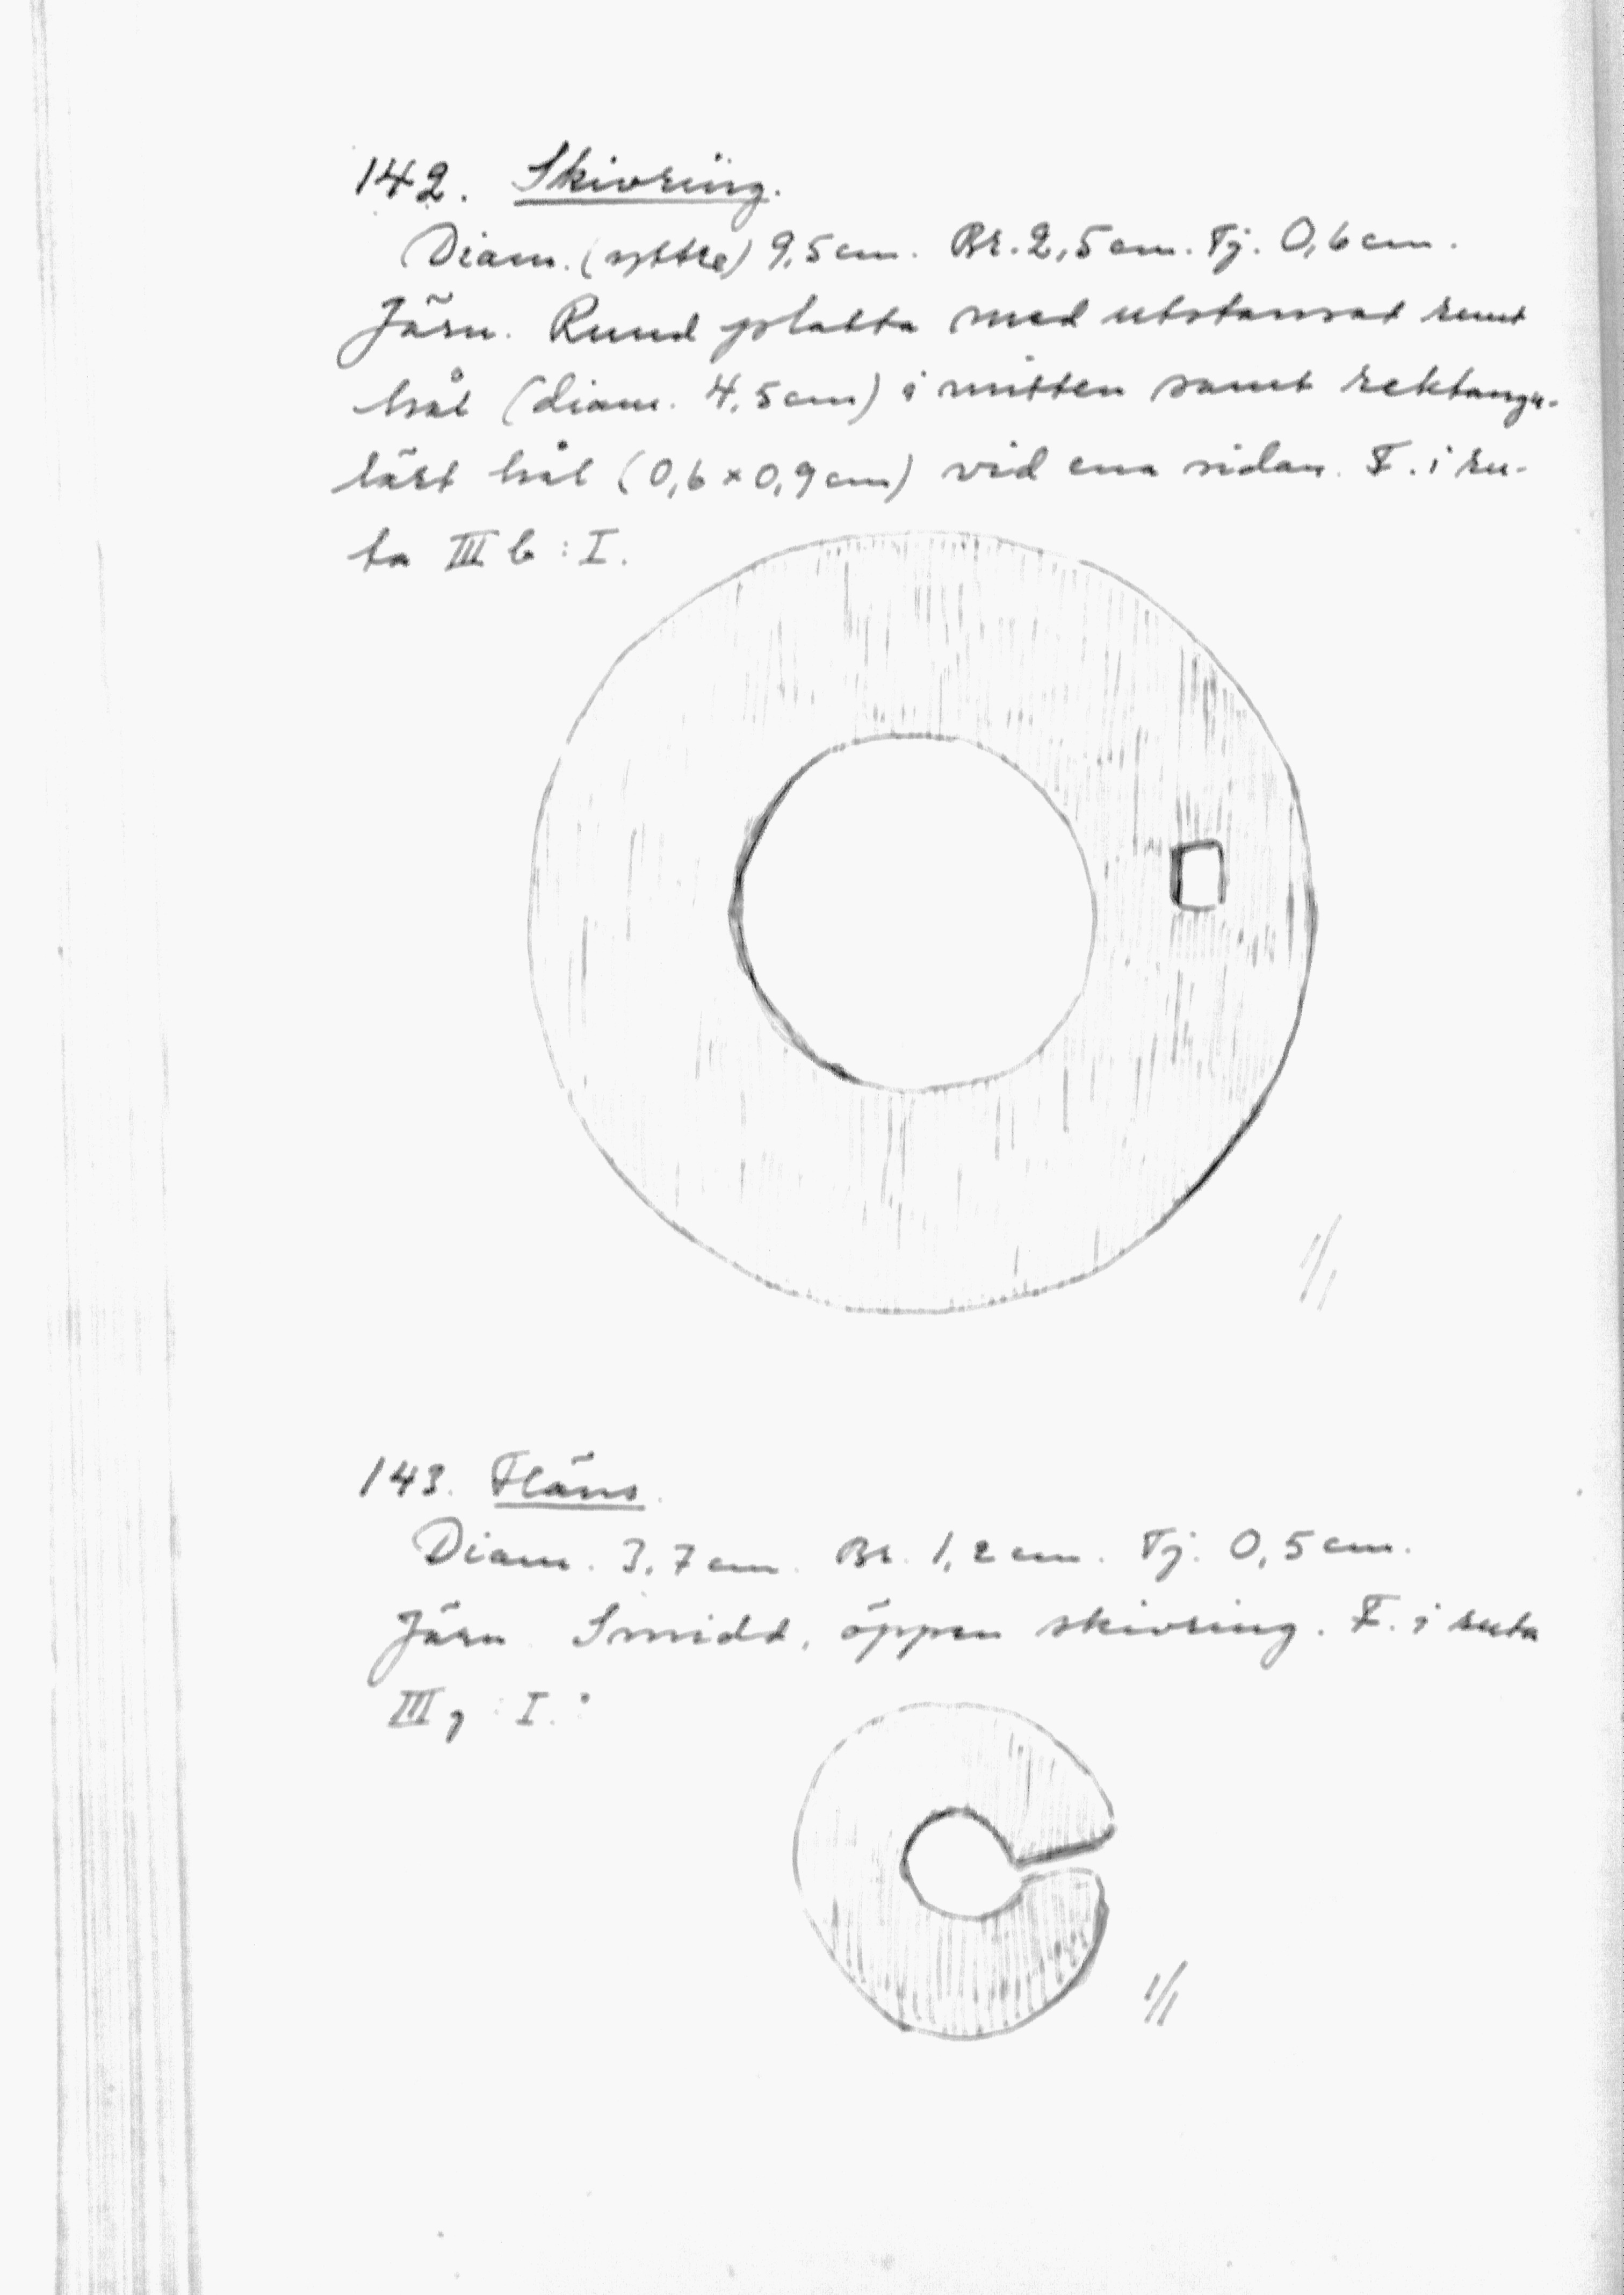 142. Skivring.
Diam. (yttre) 9,5 cm. Br. 2,5 cm. Tj. 0,6 cm.
Järn. Rund platta med utstansat runt
hål (diam. 4,5 cm) i mitten samt rektangu-
lärt hål (0,6 x 0,9 cm) vid ena sidan. F. i ru-
ta III b : I.
1/1
143. Fläns.
Diam. 3,7 cm. Br. 1,2 cm. Tj. 0,5 cm.
Järn. Smidd, öppen skivring. F. i ruta
III : I.
1/1